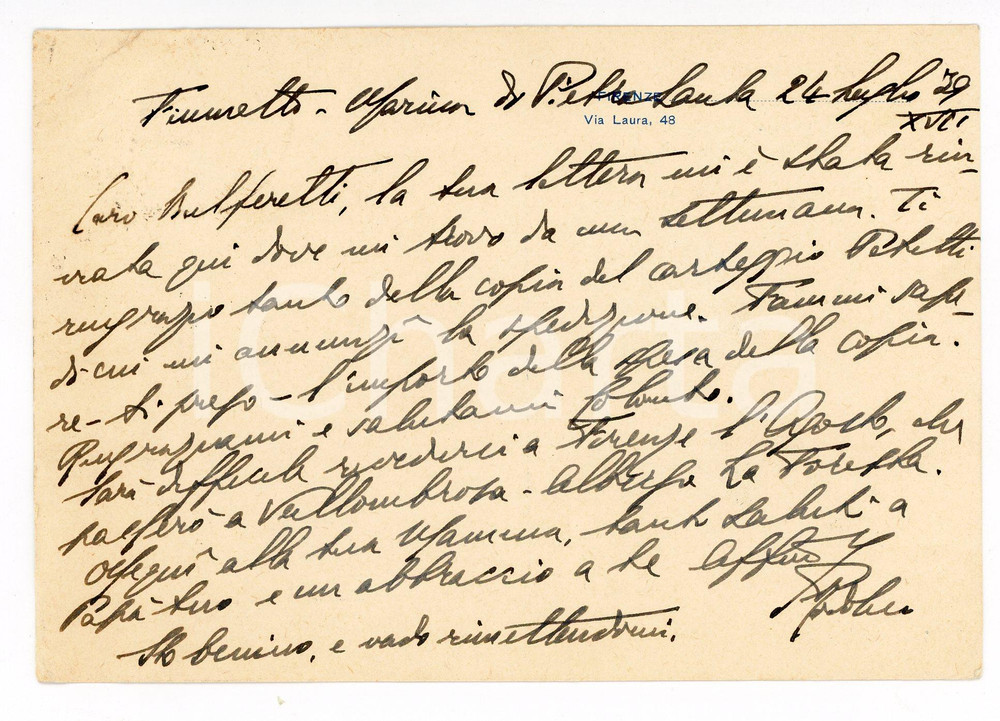 Fiumetto - Marina di Pietra Santa 24 Luglio 39
XVII
FIRENZE
Via Laura, 48
Caro Bulferetti, la tua lettera mi è stata rin-
viata qui dove mi trovo da una settimana. Ti
ringrazio tanto della copia del carteggio
di cui mi annunzi la spedizione. Fammi sape-
re - ti prego - l'importo della spesa della copia.
Ringraziami e salutami
Sarà difficile rivederci a Firenze l'Agosto, che
passerò a Vallombrosa - Albergo La Foresta.
Ossequi alla tua Mamma, tanti saluti a
Papà tuo e un abbraccio a te Aff/mo
Sto benino, e vado rimettendomi.
iCharta